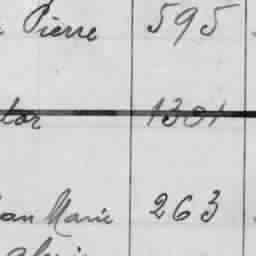 Pierre 595
tor 1301
an Marie 263